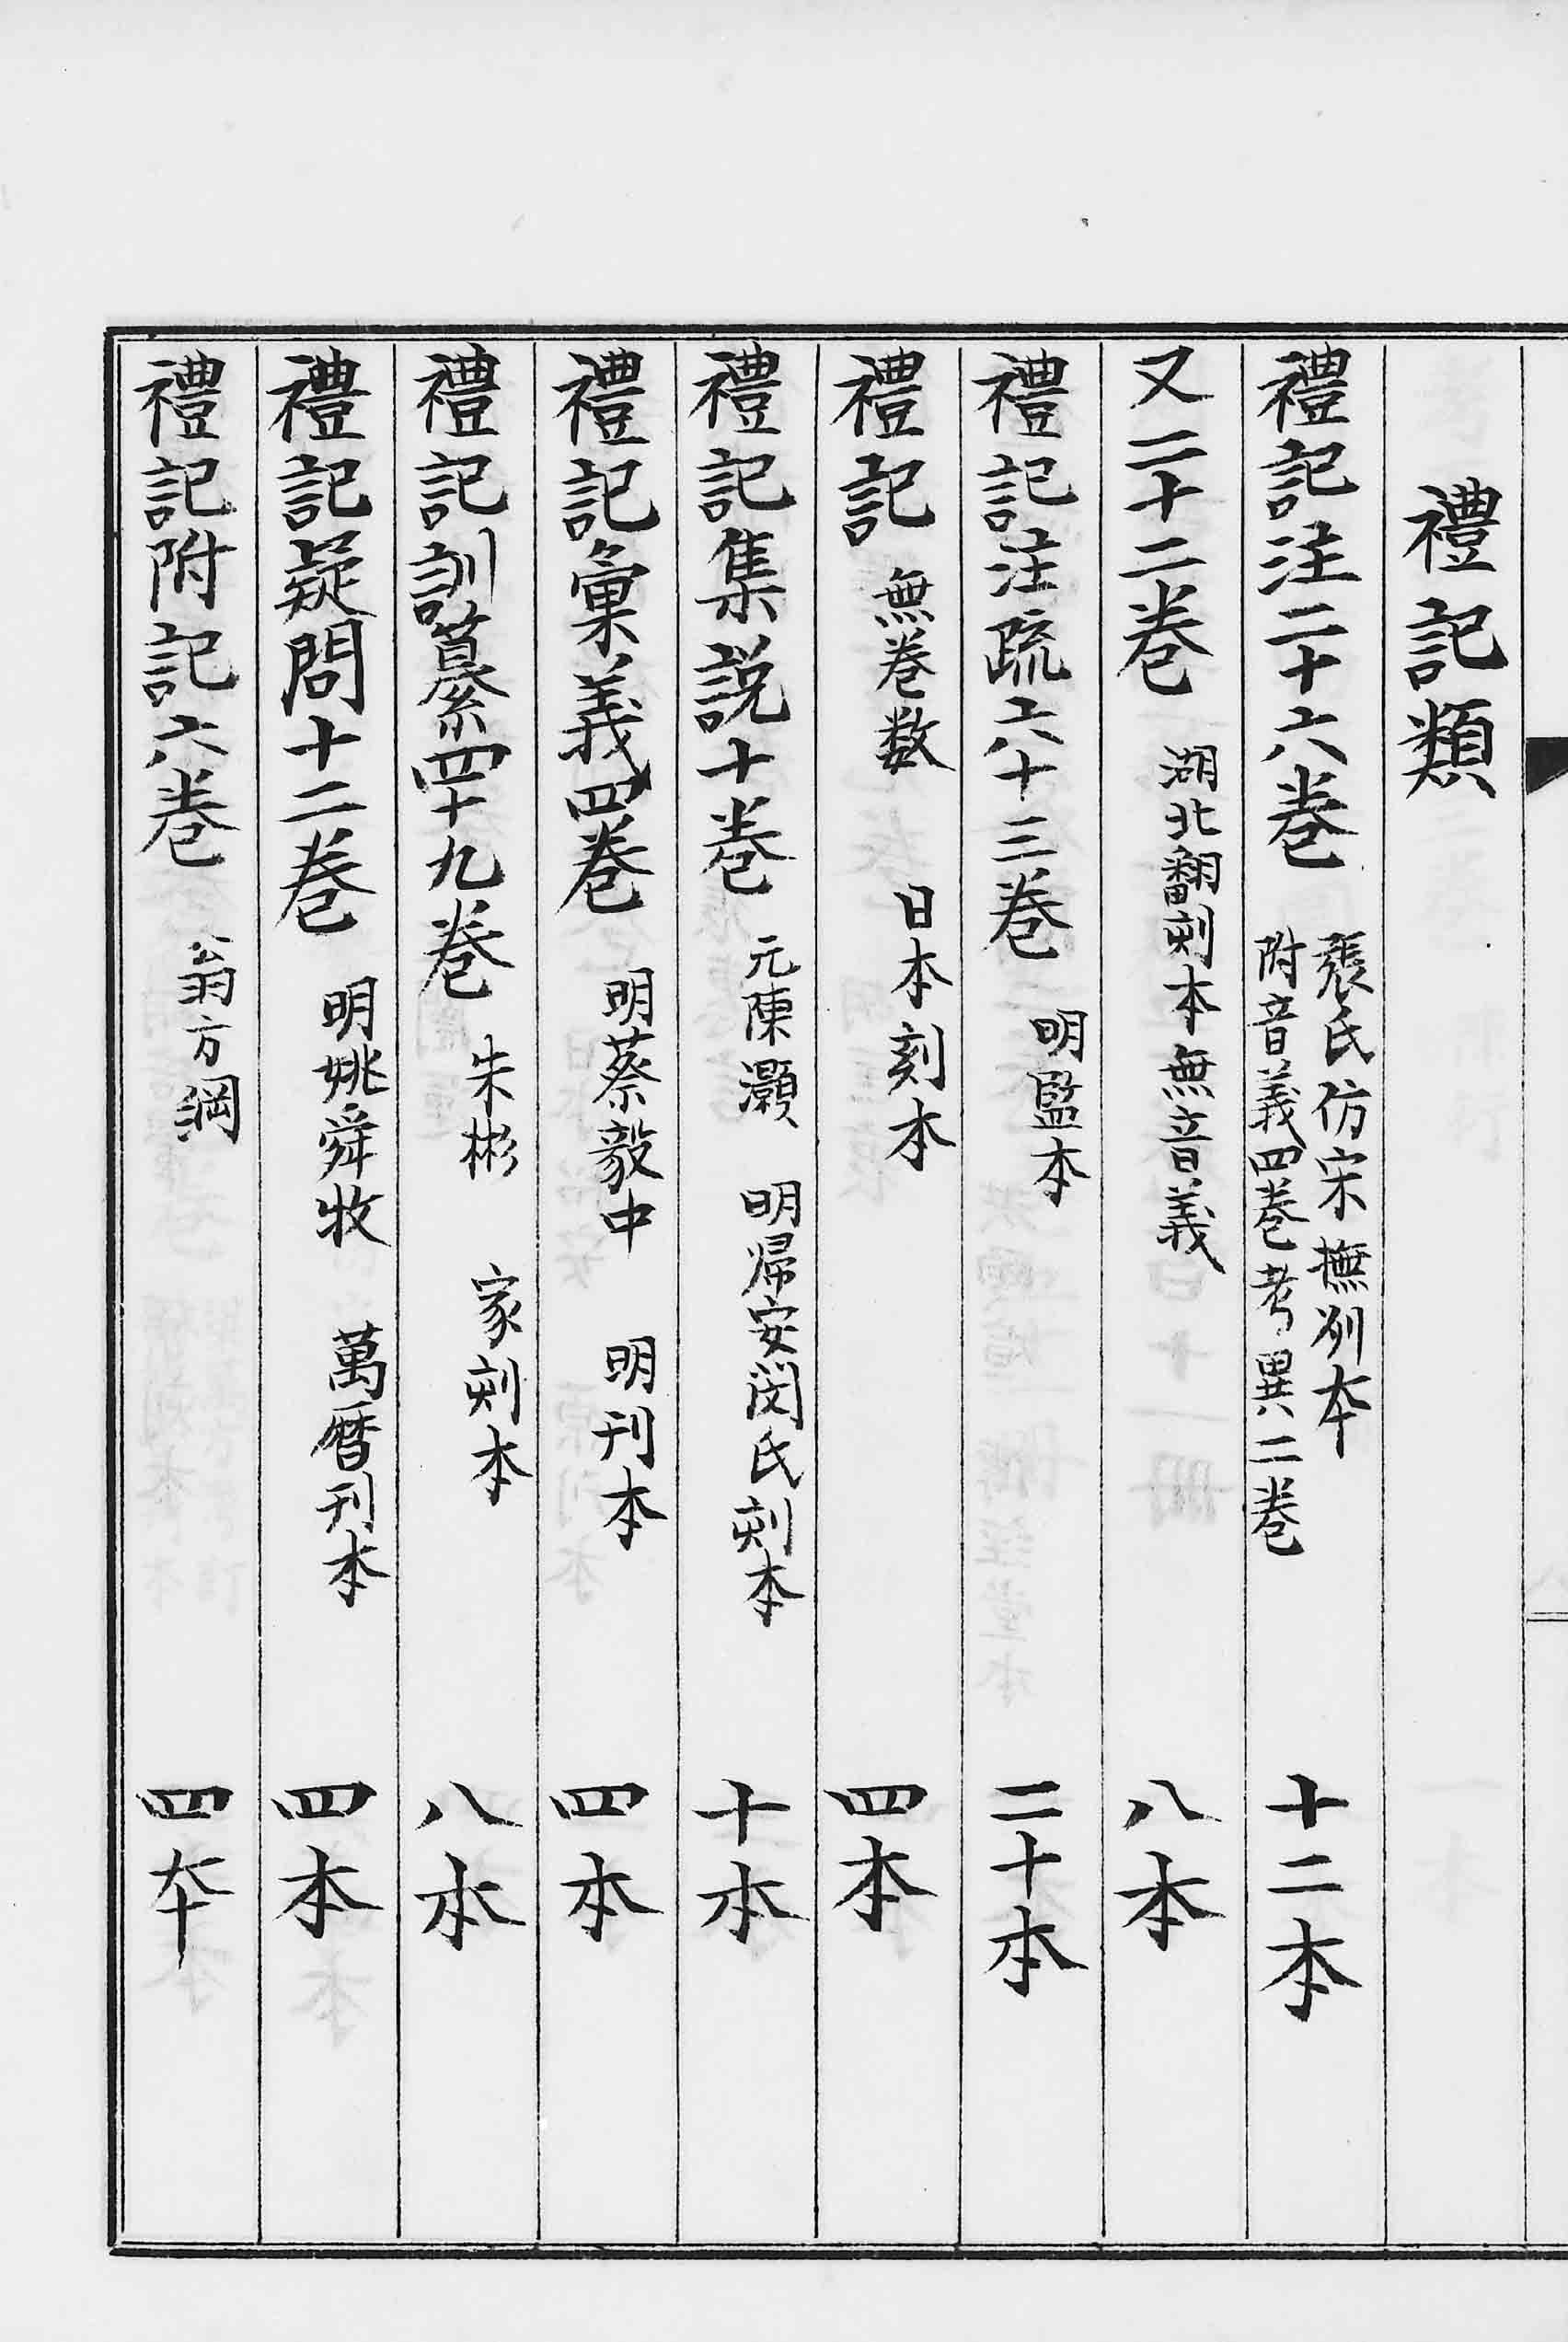 禮記類
禮記注二十六卷 張氏仿宋撫州本 附音義四卷考異二卷 十二本
又二十二卷 湖北翻刻本無音義 八本
禮記注疏六十三卷 明監本 二十本
禮記 無卷数 日本刻本 四本
禮記集説十卷 元陳灝 明歸安閔氏刻本 十本
禮記彙義四卷 明蔡毅中 明刊本 四本
禮記訓纂四十九卷 朱彬 家刻本 八本
禮記疑問十二卷 明姚舜牧 萬曆刊本 四本
禮記附記六卷 翁方綱 四本